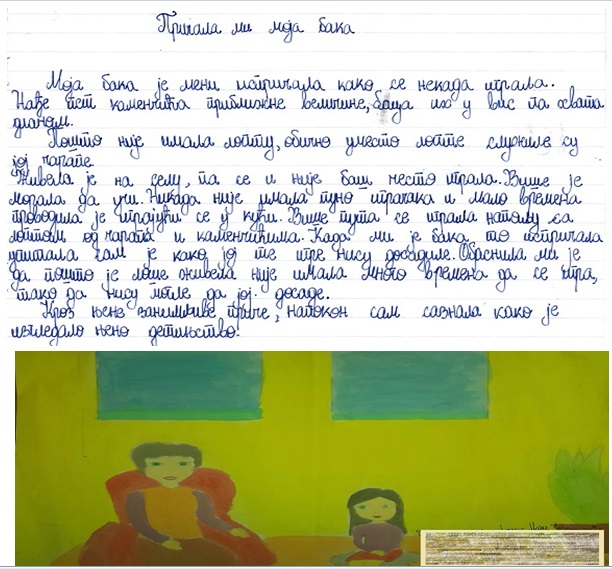 Причала ми моја бака
Моја бака је мени испричала како се некада играла.
Нађе пет каменчића приближне величине, баца их у вис па хвата
дланом.
Пошто није имала лопту, обично уместо лопте служиле су
јој чарапе.
Живела је на селу, па се и није баш често играла. Више је
морала да учи. Никада није имала пуно играчака и мало времена
проводила је играјући се у кући. Више пута се играла напољу са
лоптом од чарапа и каменчићима. Када ми је бака то испричала
упитала сам је како јој те игре нису досадиле. Објаснила ми је
да пошто је лоше живела није имала много времена да се игра,
тако да нису могле да јој досаде.
Кроз њене занимљиве приче, напокон сам сазнала како је
изгледало њено детињство.